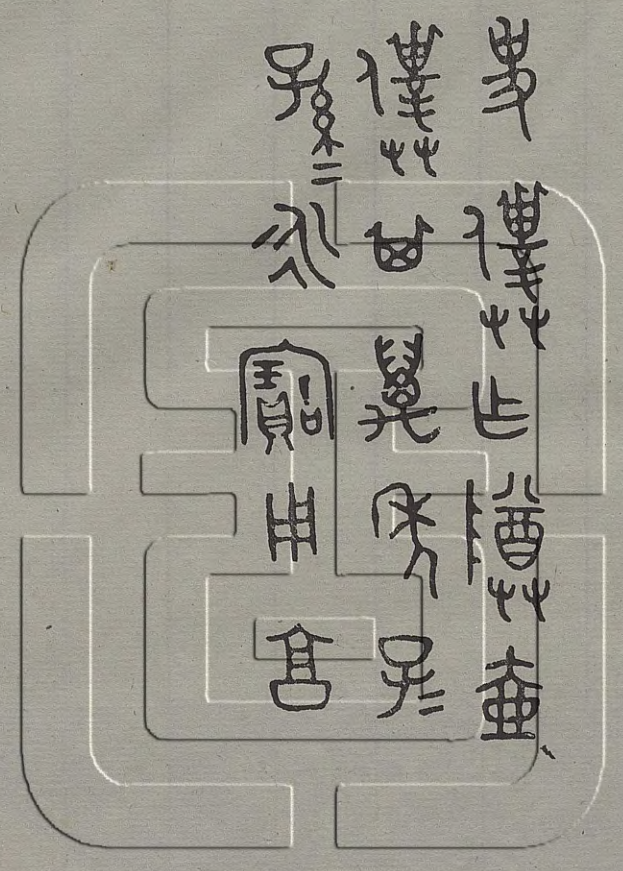 史僕乍尊壺
僕其萬年子=
孫=永寶用享